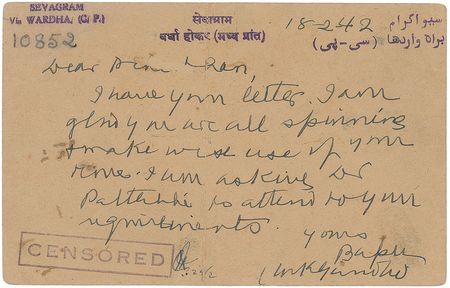 SEVAGRAM
Via WARDHA, (C. P.)
10852
सेवाग्राम
वर्धा होकर (मध्य प्रांत)
18-2-42
سیوا گرام
براہ واردھا (سی - پی)
Dear
I have your letter. I am
glad you are all spinning
& make wise use of your
time. I am asking Dr
Pattabhi to attend to your
requirements.
yours
Bapu
(MKGandhi)
CENSORED